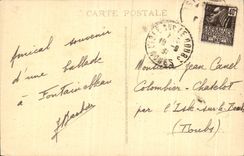 CARTE POSTALE
Amical souvenir
d'une ballade
à Fontainebleau
Monsieur Jean Canel
Colombier-Chatelot
par l'Isle-sur-le-Doubs
(Doubs)